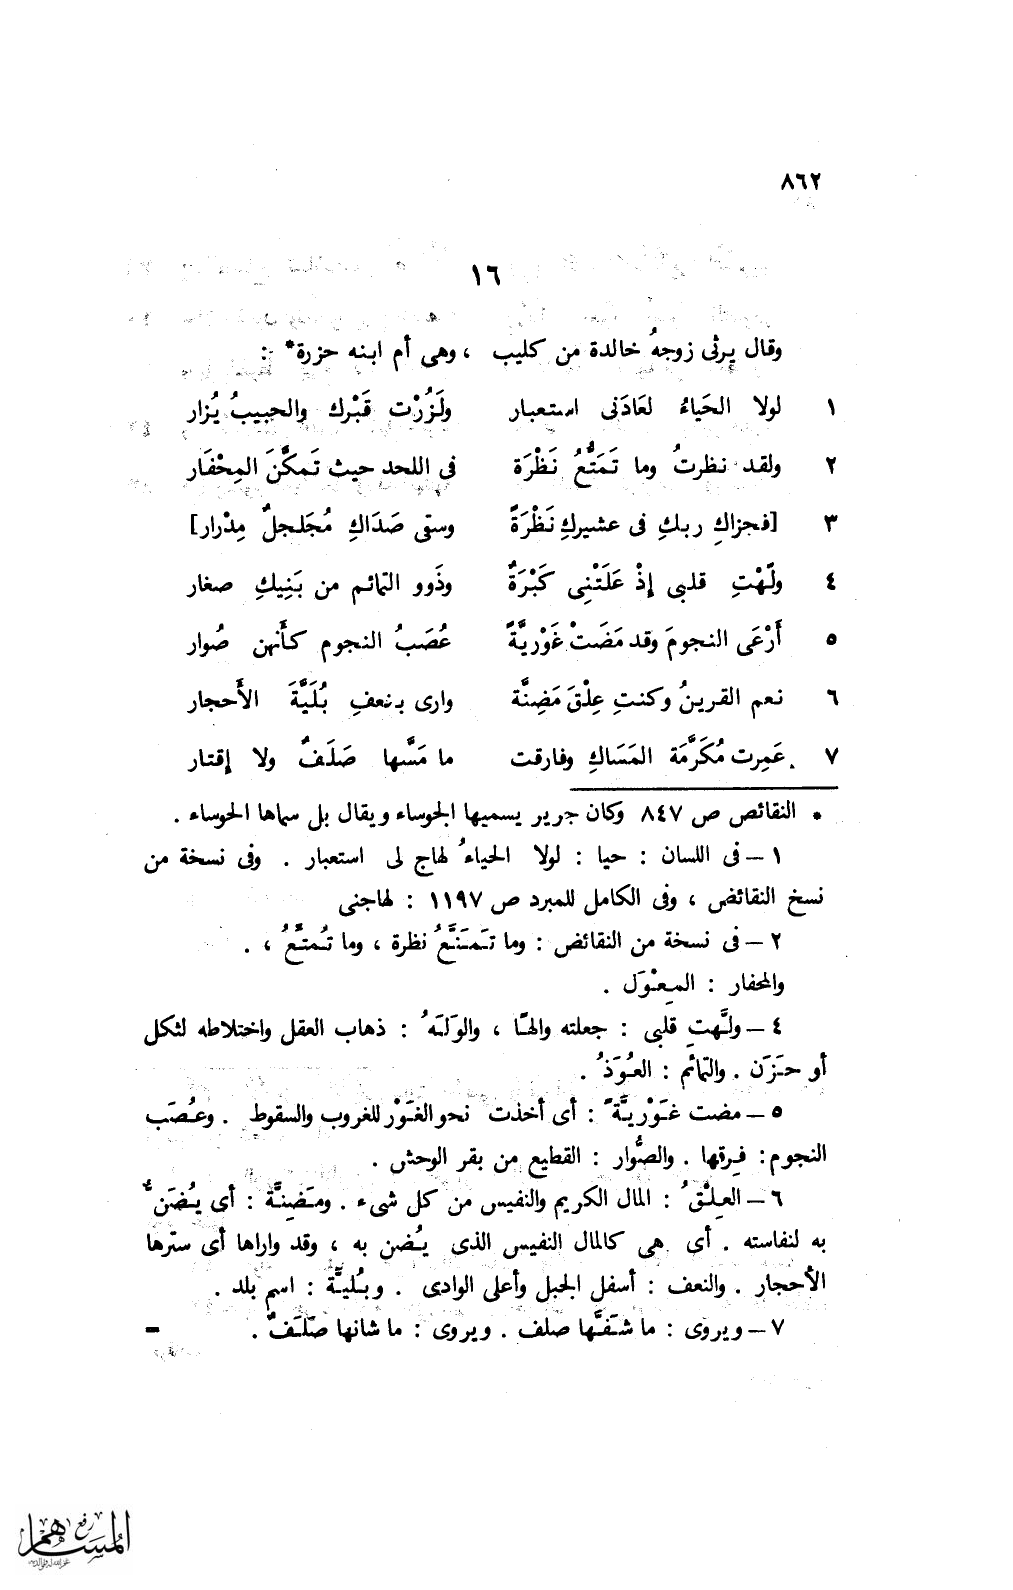 ٨٦٢
١٦
وقال يرثى زوجهُ خالدة من كليب ، وهى أم ابنه حزرة* :
١ لولا الحَياءُ لعَادَنى استعبار ولَزُرْت قَبْرك والحبيبُ يُزار
٢ ولقد نظرتُ وما تَمَتُّعُ نَظْرَة فى اللحد حيث تَمكَّنَ المِحْفَار
٣ [فجزاكِ ربكِ فى عشيركِ نَظْرَةً وسقى صَدَاكِ مُجَلجلٌ مِدْرار]
٤ ولّهْتِ قلبى إذْ عَلَتْنِى كَبْرَةٌ وذَوو التمائم من بَنِيكِ صغار
٥ أَرْعَى النجومَ وقد مَضَتْ غَوْريَّةً عُصَبُ النجوم كأَنهن صُوار
٦ نعم القرينُ وكنتِ عِلْقَ مَضِنَّة وارى بنعفِ بُلَيَّةَ الأَحجار
٧ عَمِرت مُكَرَّمَة المَسَاكِ وفارقت ما مَسَّها صَلَفٌ ولا إقتار
* النقائص ص ٨٤٧ وكان جرير يسميها الجوساء ويقال بل سماها الحوساء .
١ – فى اللسان : حيا : لولا الحياءُ لهاج لى استعبار . وفى نسخة من
نسخ النقائض ، وفى الكامل للمبرد ص ١١٩٧ : لهاجنى
٢ – فى نسخة من النقائض : وما تَمَتَّعُ نظرة ، وما تُمتَّعُ ، .
والمحفار : المِعْوَل .
٤ – ولَّهتِ قلبى : جعلته والهًا ، والوَلَهُ : ذهاب العقل واختلاطه لثكل
أو حَزَن . والتمائم : العُوَذُ .
٥ – مضت غَوْريَّةً : أى أخذت نحو الغَوْر للغروب والسقوط . وعُصَب
النجوم : فِرقها . والصُّوار : القطيع من بقر الوحش .
٦ – العِلْقُ : المال الكريم والنفيس من كل شىء . ومَضِنَّة : أى يُضَنّ
به لنفاسته . أى هى كالمال النفيس الذى يُضن به ، وقد واراها أى سترها
الأحجار . والنعف : أسفل الجبل وأعلى الوادى . وبُليَّة : اسم بلد .
٧ – ويروى : ما شَفَّها صلف . ويروى : ما شانها صَلَفٌ . =